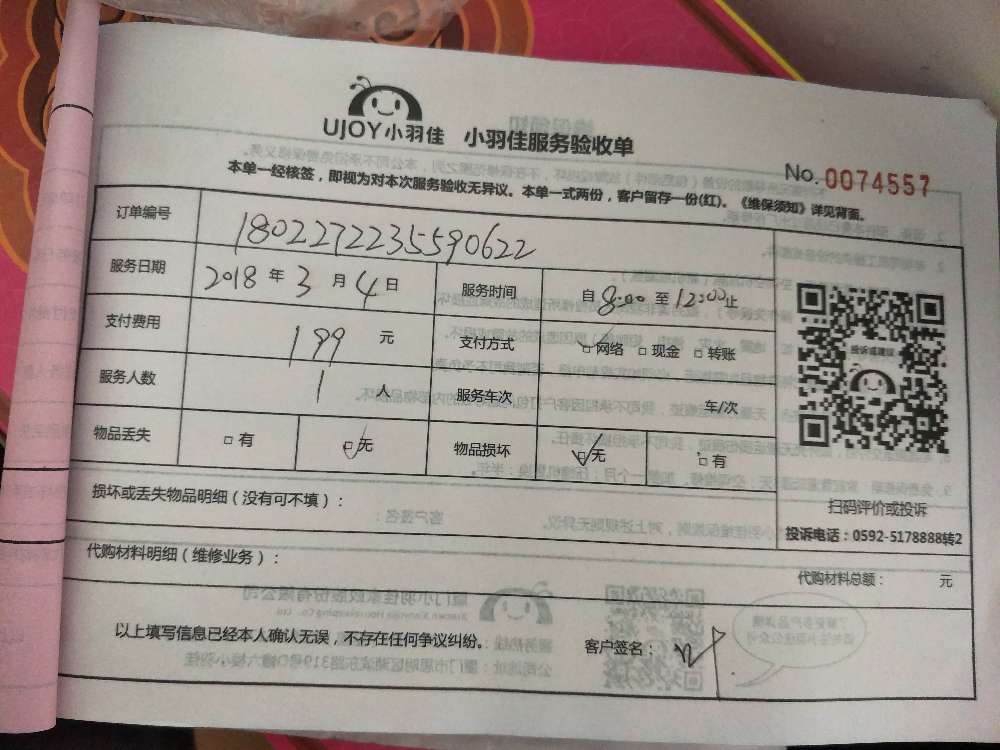 UJOY小羽佳 小羽佳服务验收单
No. 0074557
本单一经核签，即视为对本次服务验收无异议。本单一式两份，客户留存一份(红)。《维保须知》详见背面。
订单编号 1802272235590622
服务日期 2018 年 3 月 4 日 服务时间 自 8:00 至 12:00止
支付费用 199 元 支付方式 □网络 □现金 □转账
服务人数 1 人 服务车次 车/次
物品丢失 □有 □无 物品损坏 □无 □有
投诉或建议
扫码评价或投诉
投诉电话：0592-5178888转2
损坏或丢失物品明细（没有可不填）：
代购材料明细（维修业务）：
代购材料总额： 元
以上填写信息已经本人确认无误，不存在任何争议纠纷。 客户签名：